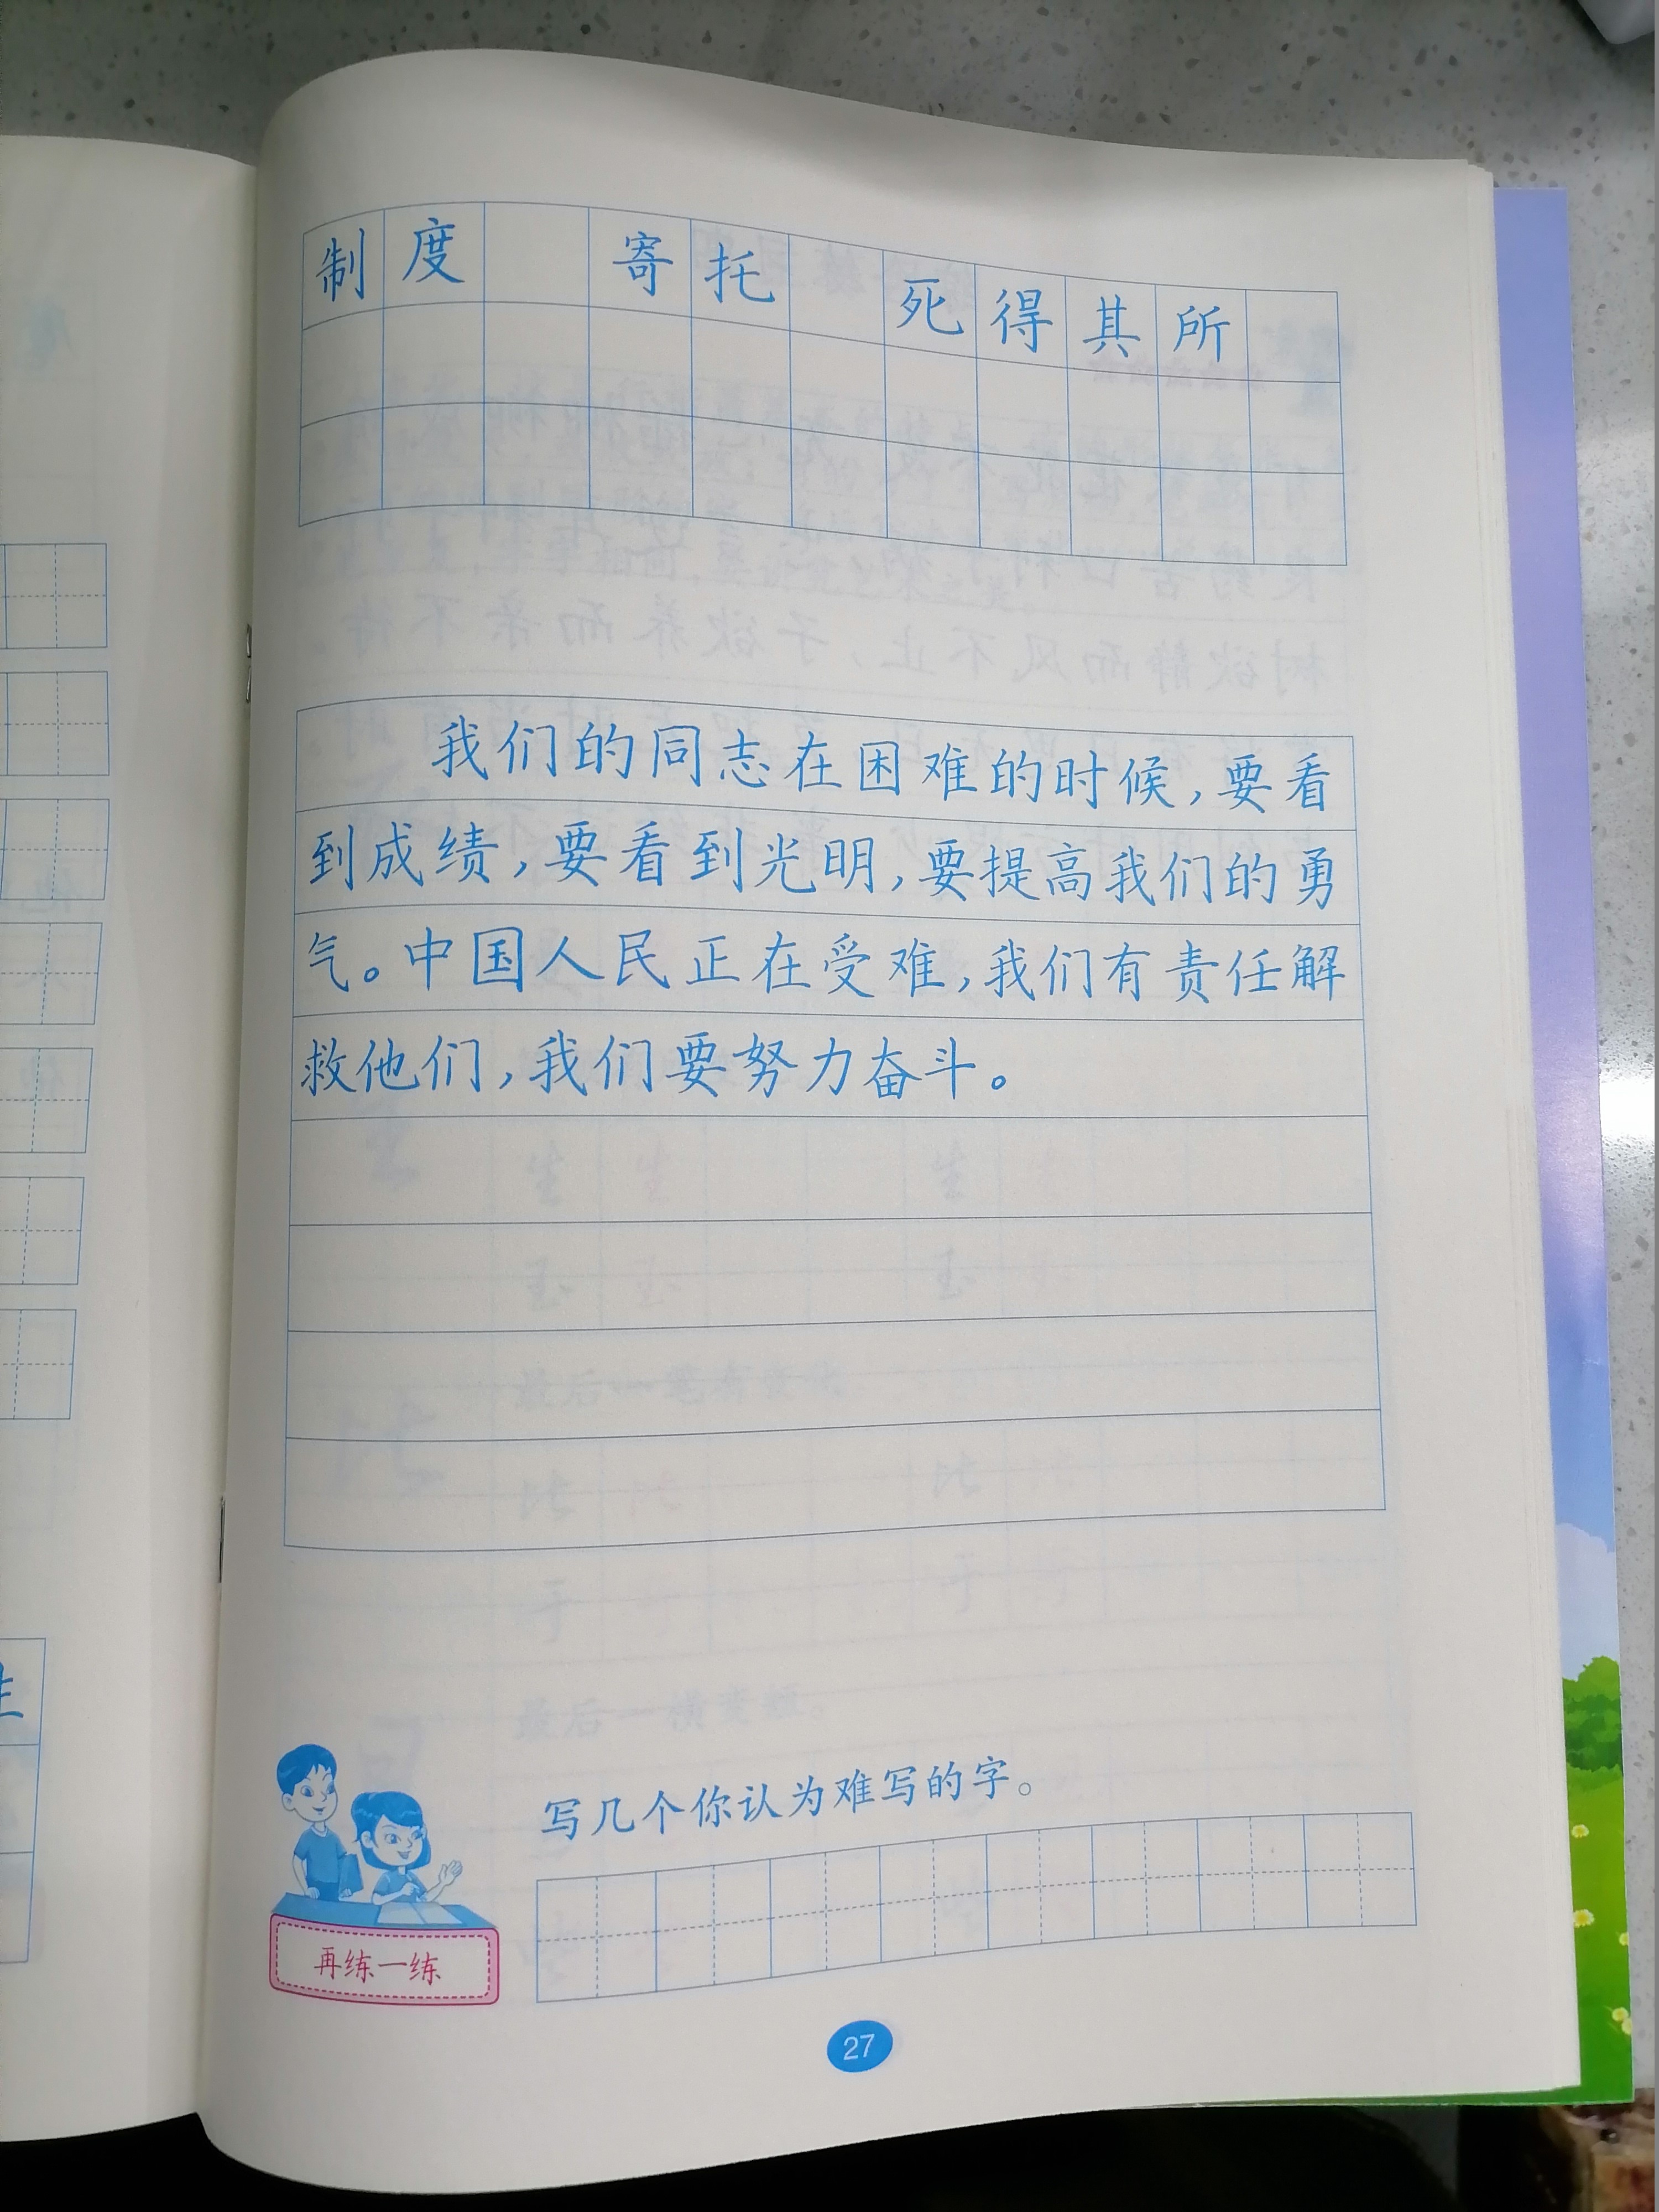 制度 寄托 死得其所
我们的同志在困难的时候,要看
到成绩,要看到光明,要提高我们的勇
气。中国人民正在受难,我们有责任解
救他们,我们要努力奋斗。
写几个你认为难写的字。
再练一练
27